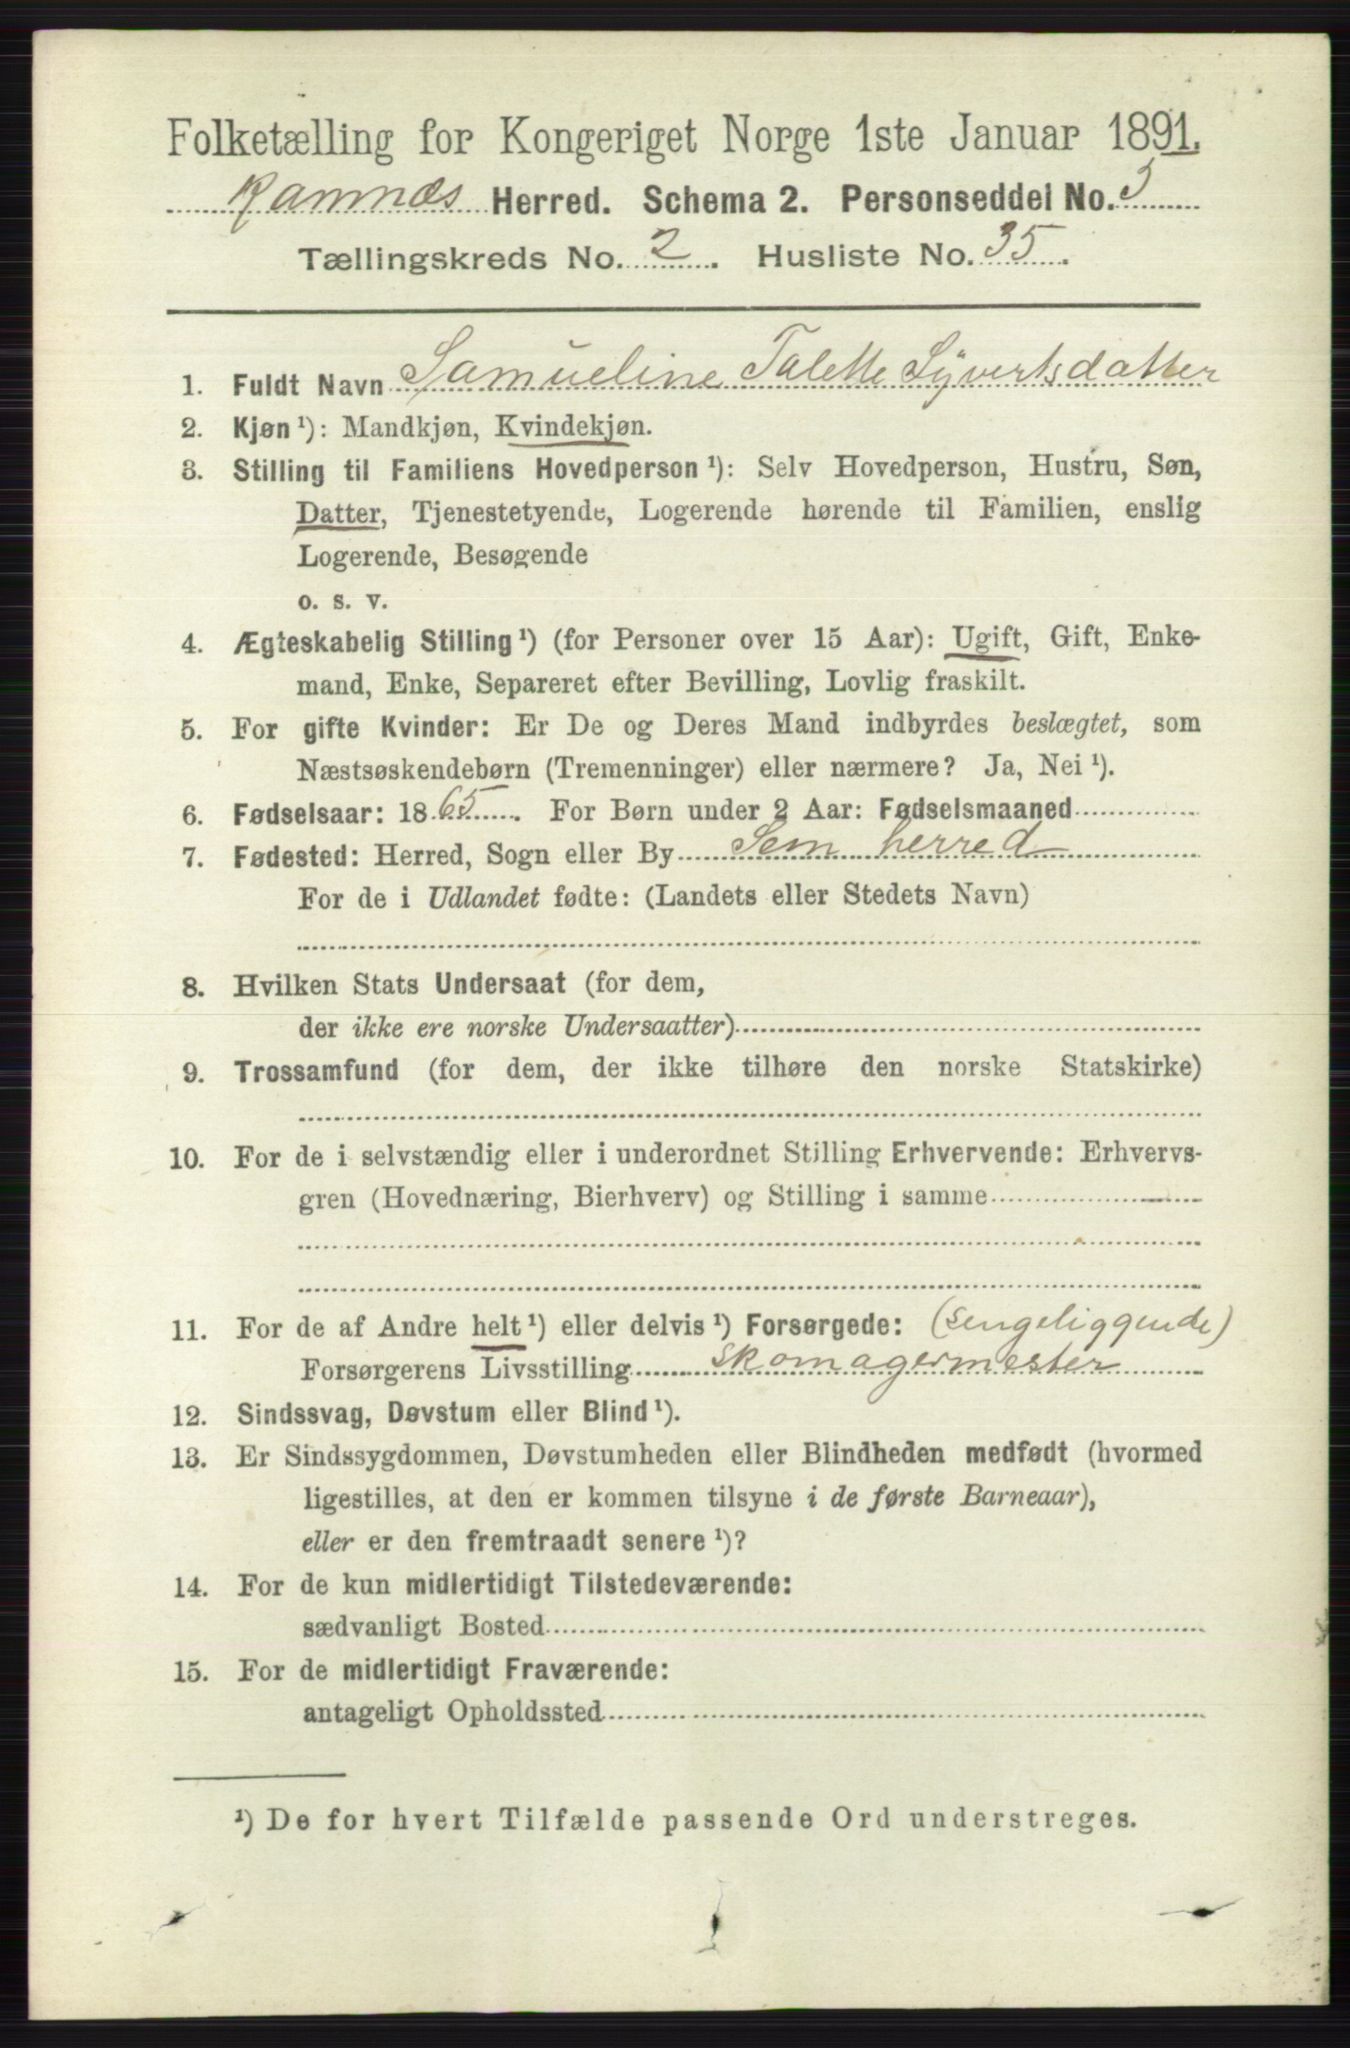 Folketælling for Kongeriget Norge 1ste Januar 1891.
Ramnæs Herred. Schema 2. Personseddel No. 3
Tællingskreds No. 2. Husliste No. 35.
1. Fuldt Navn Samueline Talette Syvertsdatter
2. Kjøn ¹): Mandkjøn, Kvindekjøn.
3. Stilling til Familiens Hovedperson ¹): Selv Hovedperson, Hustru, Søn,
Datter, Tjenestetyende, Logerende hørende til Familien, enslig
Logerende, Besøgende
o. s. v.
4. Ægteskabelig Stilling ¹) (for Personer over 15 Aar): Ugift, Gift, Enke-
mand, Enke, Separeret efter Bevilling, Lovlig fraskilt.
5. For gifte Kvinder: Er De og Deres Mand indbyrdes beslægtet, som
Næstsøskendebørn (Tremenninger) eller nærmere? Ja, Nei ¹).
6. Fødselsaar: 1865. For Børn under 2 Aar: Fødselsmaaned
7. Fødested: Herred, Sogn eller By Sem herred
For de i Udlandet fødte: (Landets eller Stedets Navn)
8. Hvilken Stats Undersaat (for dem,
der ikke ere norske Undersaatter)
9. Trossamfund (for dem, der ikke tilhøre den norske Statskirke)
10. For de i selvstændig eller i underordnet Stilling Erhvervende: Erhvervs-
gren (Hovednæring, Bierhverv) og Stilling i samme
11. For de af Andre helt ¹) eller delvis ¹) Forsørgede: (sengeliggende)
Forsørgerens Livsstilling skomagermester
12. Sindssvag, Døvstum eller Blind ¹).
13. Er Sindssygdommen, Døvstumheden eller Blindheden medfødt (hvormed
ligestilles, at den er kommen tilsyne i de første Barneaar),
eller er den fremtraadt senere ¹)?
14. For de kun midlertidigt Tilstedeværende:
sædvanligt Bosted
15. For de midlertidigt Fraværende:
antageligt Opholdssted
¹) De for hvert Tilfælde passende Ord understreges.